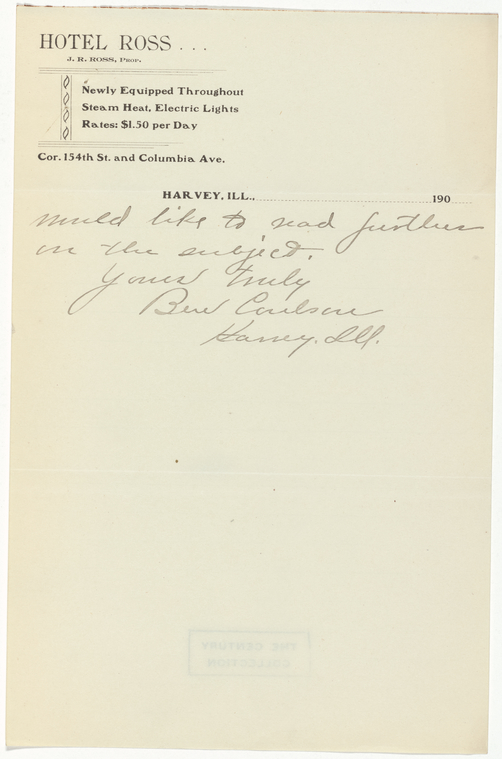 HOTEL ROSS . . .
J. R. ROSS, PROP.
Newly Equipped Throughout
Steam Heat, Electric Lights
Rates: $1.50 per Day
Cor. 154th St. and Columbia Ave.
HARVEY, ILL., 190
would like to read further
on the subject.
Yours truly
Ben Coulson
Harvey. Ill.
THE CENTURY
COLLECTION